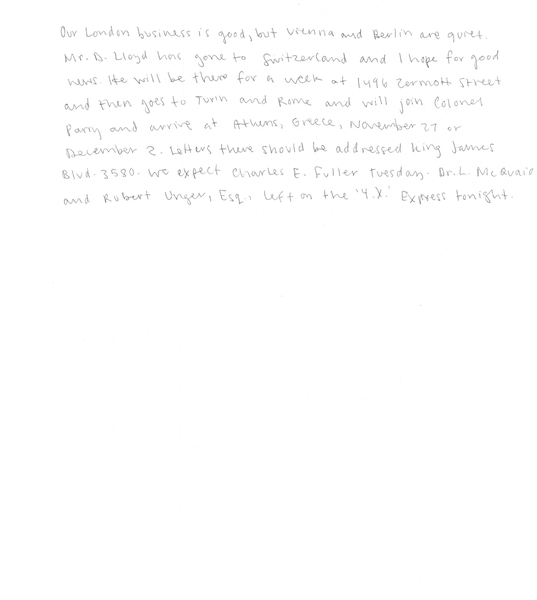 Our London business is good, but Vienna and Berlin are quiet.
Mr. D. Lloyd has gone to Switzerland and I hope for good
news. He will be there for a week at 1496 Zermott Street
and then goes to Turin and Rome and will join Colonel
Parry and arrive at Athens, Greece, November 27 or
December 2. Letters there should be addressed King James
Blvd. 3580. We expect Charles E. Fuller Tuesday. Dr. L. McQuaid
and Robert Unger, Esq., left on the 'Y.X.' Express tonight.